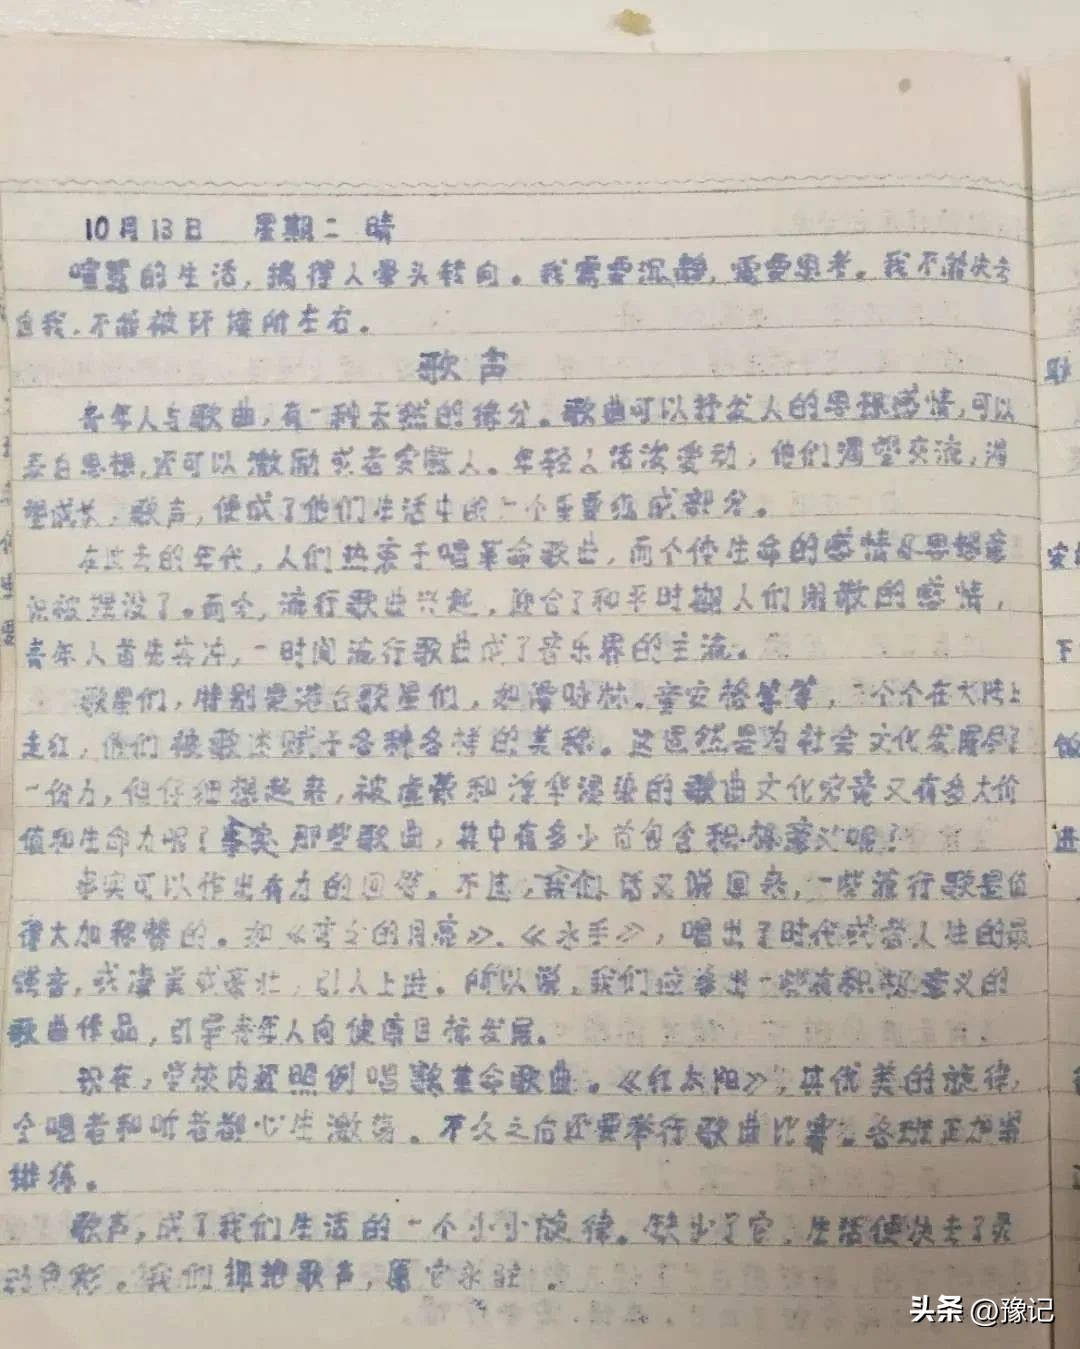 10月13日 星期二 晴
喧嚣的生活，搞得人晕头转向。我需要沉静，需要思考。我不能失去
自我，不能被环境所左右。
歌声
青年人与歌曲，有一种天然的缘分。歌曲可以抒发人的思想感情，可以
表白思想，还可以激励或者安慰人。年轻人活泼爱动，他们渴望交流，渴
望成长，歌声，便成了他们生活中的一个重要组成部分。
在过去的年代，人们热衷于唱革命歌曲，而个体生命的感情及思想意
识被埋没了。而今，流行歌曲兴起，迎合了和平时期人们闲散的感情，
青年人首先其冲，一时间流行歌曲成了音乐界的主流。
歌星们，特别是港台歌星们，如谭咏麟、童安格等等，一个个在大陆上
走红，他们被歌迷赋予各种各样的美称。这固然是为社会文化发展尽了
一份力，但仔细想起来，被虚荣和浮华浸染的歌曲文化究竟又有多大价
值和生命力呢？事实那些歌曲，其中有多少首包含积极意义呢？
事实可以作出有力的回答。不过，我们话又说回来，一些流行歌是值
得大加称赞的。如《弯弯的月亮》、《水手》，唱出了时代或者人生的最
强音，或凄美或豪壮，引人上进。所以说，我们应多出一些有积极意义的
歌曲作品，引导青年人向健康目标发展。
现在，学校内还照例唱歌革命歌曲。《红太阳》，其优美的旋律，
令唱者和听者都心生激荡。不久之后还要举行歌曲比赛。各班正加紧
排练。
歌声，成了我们生活的一个小小旋律。缺少了它，生活便失去了灵
动色彩。我们拥抱歌声，愿它永驻。
耻
下
进
头条 @豫记